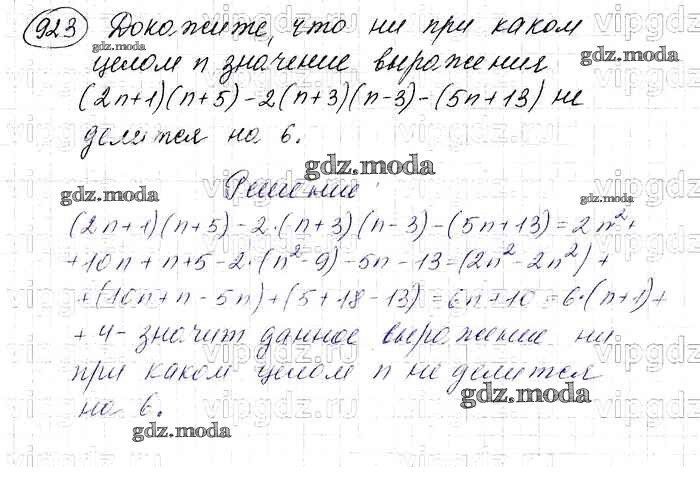 923 Докажите, что ни при каком
целом n значение выражения
(2n+1)(n+5)-2(n+3)(n-3)-(5n+13) не
делится на 6.
Решение
(2n+1)(n+5)-2·(n+3)(n-3)-(5n+13)=2n²+
+10n+n+5-2·(n²-9)-5n-13=(2n²-2n²)+
+(10n+n-5n)+(5+18-13)=6n+10=6·(n+1)+
+4- значит данное выражение ни
при каком целом n не делится
на 6.
gdz.moda
gdz.moda
gdz.moda
gdz.moda
gdz.moda
gdz.moda
gdz.moda
vipgdz.ru
vipgdz.ru
vipgdz.ru
vipgdz.ru